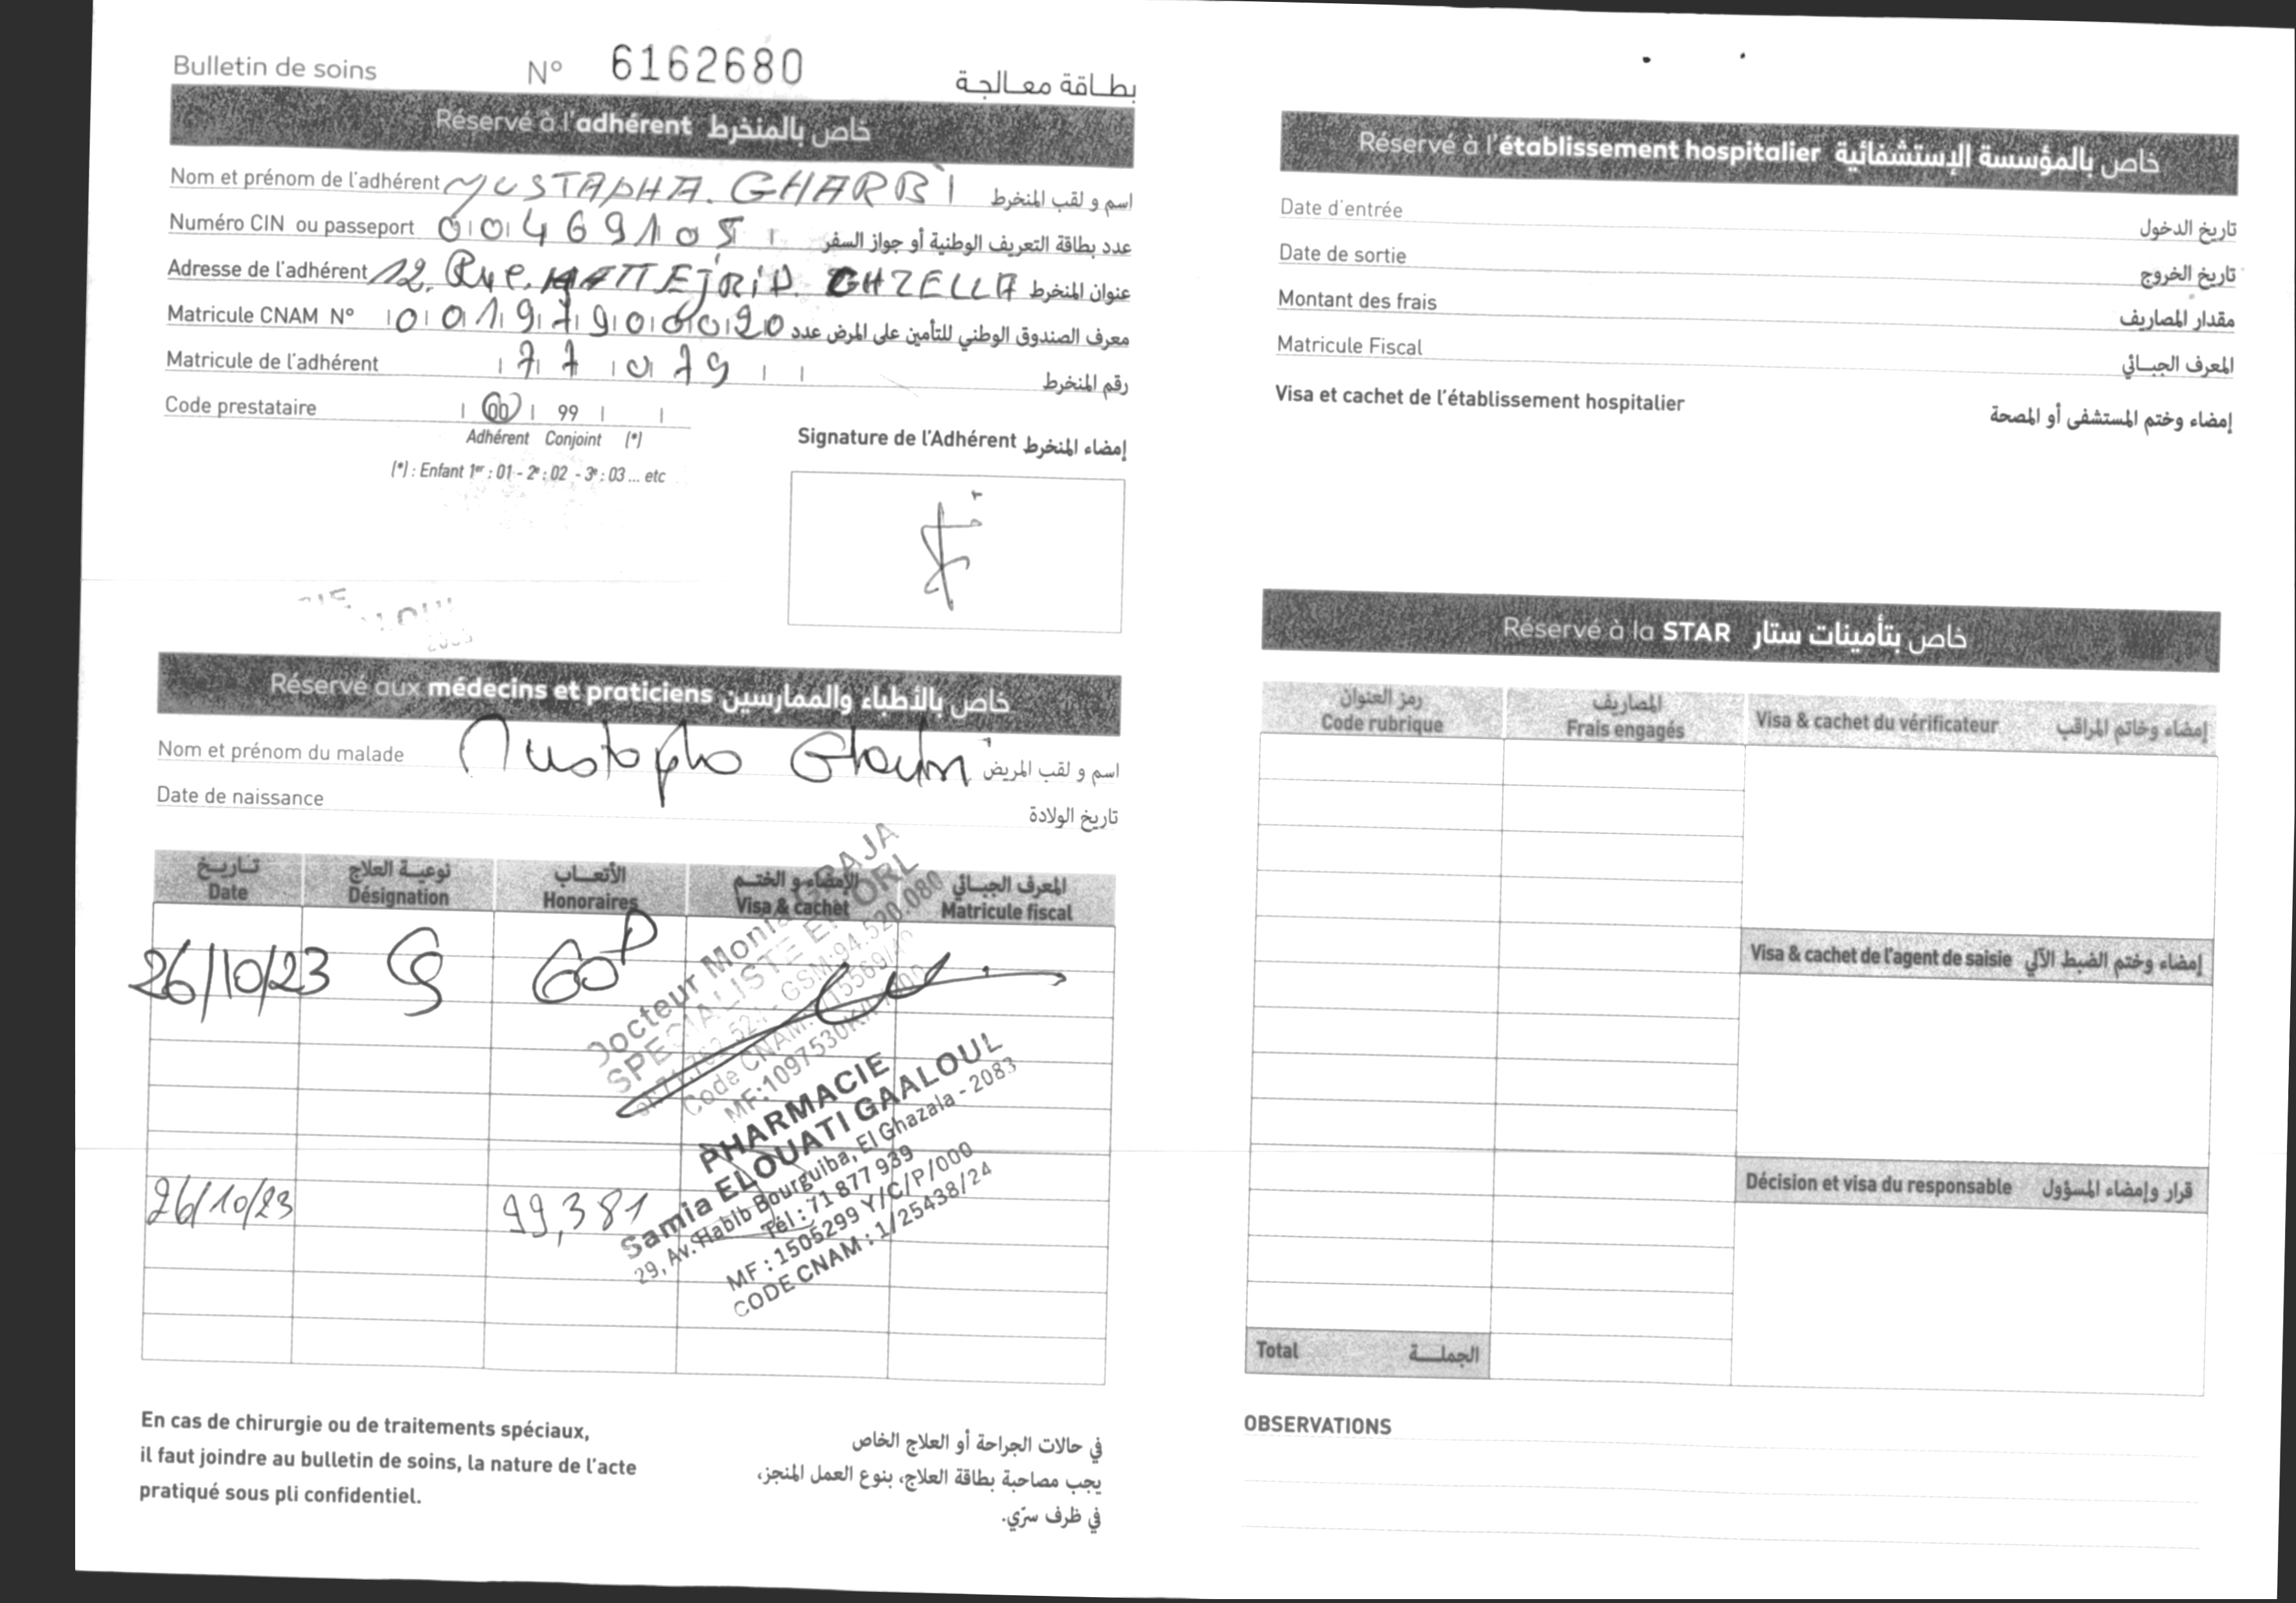 Bulletin de soins N° 6162680 بطاقة معالجة
Réservé à l'adhérent خاص بالمنخرط
Nom et prénom de l'adhérent MUSTAPHA. GHARBI اسم و لقب المنخرط
Numéro CIN ou passeport 00469105 عدد بطاقة التعريف الوطنية أو جواز السفر
Adresse de l'adhérent 12, Rue. GHZELLA عنوان المنخرط
Matricule CNAM N° معرف الصندوق الوطني للتأمين على المرض عدد
Matricule de l'adhérent 77079 رقم المنخرط
Code prestataire 00 99
Adhérent Conjoint (*)
(*) : Enfant 1er : 01 - 2e : 02 - 3e : 03 ... etc
Signature de l'Adhérent إمضاء المنخرط
Réservé aux médecins et praticiens خاص بالأطباء والممارسين
Nom et prénom du malade Mustapha Gharbi اسم و لقب المريض
Date de naissance تاريخ الولادة
تاريخ نوعية العلاج الأتعاب الإمضاء و الختم المعرف الجبائي
Date Désignation Honoraires Visa & cachet Matricule fiscal
26/10/23 CS 60D
Docteur Monia
SPECIALISTE EN ORL
GSM:94.520.080
Code CNAM:
MF:1097530
26/10/23 99,381
PHARMACIE
Samia ELOUATI GAALOUL
29, Av. Habib Bourguiba, El Ghazala - 2083
Tél : 71 877 939
MF : 1505299 Y/C/P/000
CODE CNAM : 1/25438/24
En cas de chirurgie ou de traitements spéciaux,
il faut joindre au bulletin de soins, la nature de l'acte
pratiqué sous pli confidentiel.
في حالات الجراحة أو العلاج الخاص
يجب مصاحبة بطاقة العلاج، بنوع العمل المنجز،
في ظرف سرّي.
Réservé à l'établissement hospitalier خاص بالمؤسسة الإستشفائية
Date d'entrée تاريخ الدخول
Date de sortie تاريخ الخروج
Montant des frais مقدار المصاريف
Matricule Fiscal المعرف الجبائي
Visa et cachet de l'établissement hospitalier إمضاء وختم المستشفى أو المصحة
Réservé à la STAR خاص بتأمينات ستار
رمز العنوان المصاريف
Code rubrique Frais engagés Visa & cachet du vérificateur إمضاء وخاتم المراقب
Visa & cachet de l'agent de saisie إمضاء وختم الضبط الآلي
Décision et visa du responsable قرار وإمضاء المسؤول
Total الجملة
OBSERVATIONS